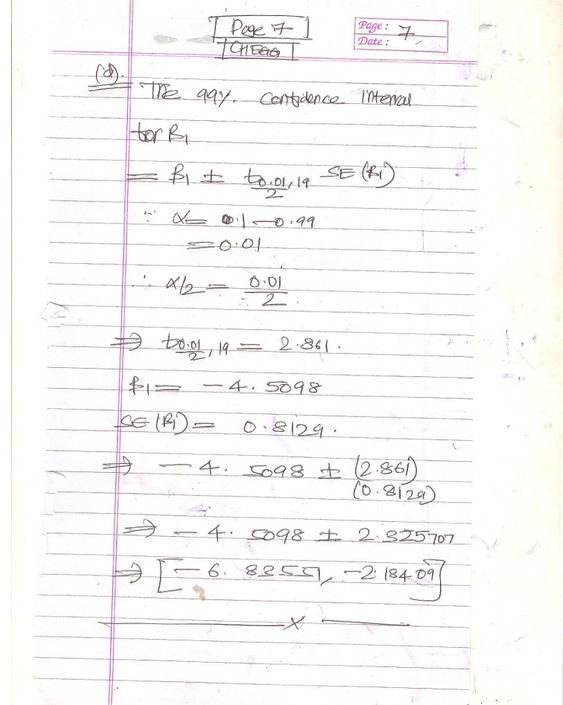 Page 7
CHEGG
Page: 7
Date:
(d). The 99%. Confidence Interval
for β1
= β1 ± t0.01/2, 19 SE(β1)
∵ α = 0.1 - 0.99
= 0.01
∴ α/2 = 0.01/2
⇒ t0.01/2, 19 = 2.861.
β1 = - 4.5098
SE(β1) = 0.8129.
⇒ - 4. 5098 ± (2.861)
(0.8129)
⇒ - 4. 5098 ± 2.325707
⇒ [- 6. 83551, -2.18409]
x